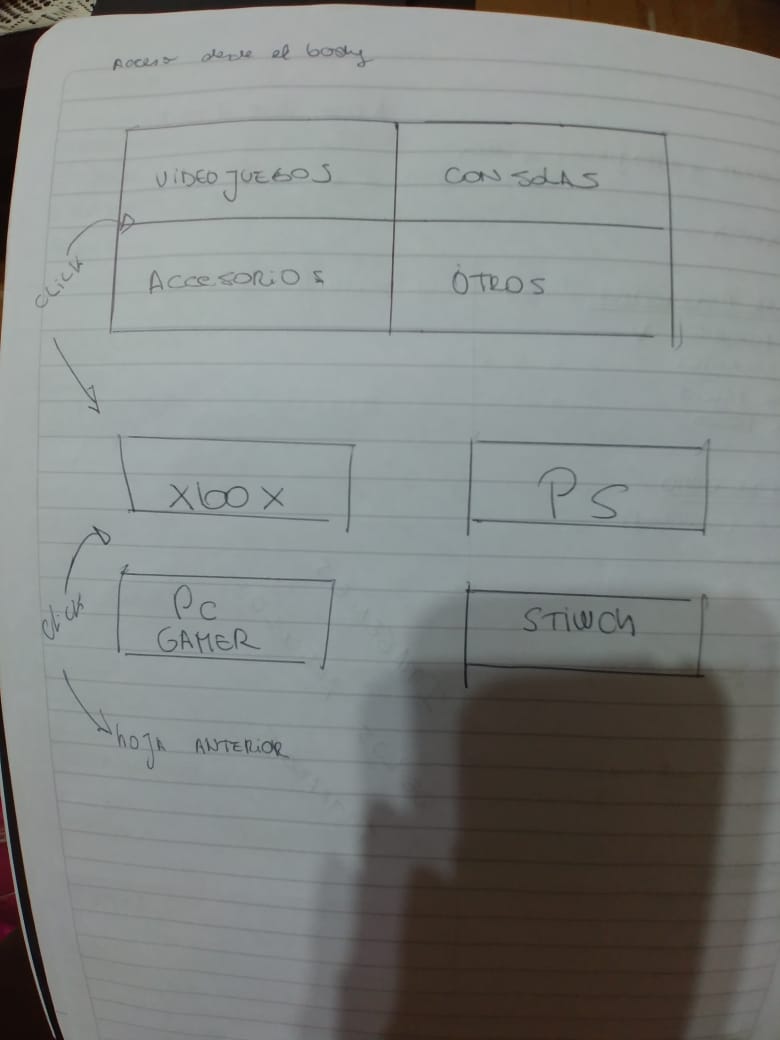 Acceso desde el body
VIDEOJUEGOS
CONSOLAS
CLICK
ACCESORIOS
OTROS
XBOX
PS
CLICK
PC
GAMER
STIWCH
HOJA ANTERIOR